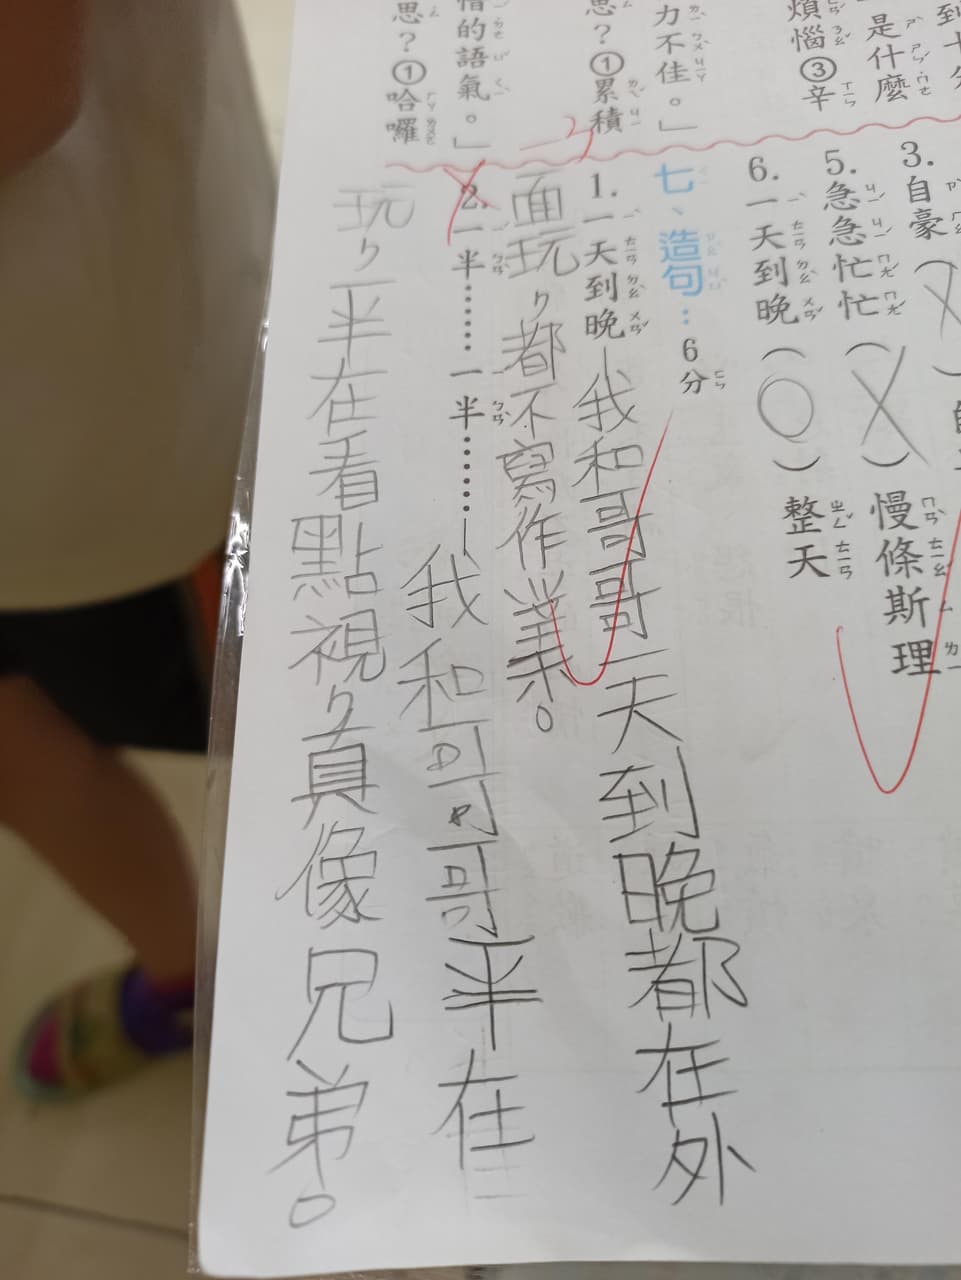 到十
是什麼
煩惱③辛
力不佳。」
思？①累積
惜的語氣。」
思？①哈囉
3.自豪（X）
5.急急忙忙（X）慢條斯理
6.一天到晚（○）整天
七、造句：6分
1.一天到晚—我和哥哥一天到晚都在外
面玩，都不寫作業。
2.一半……一半……—我和哥哥一半在
玩，一半在看點視，真像兄弟。